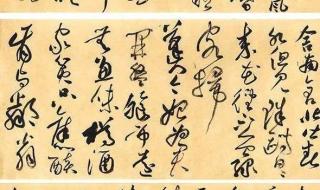 舍南舍北皆春
水但見群鷗日日
來花徑不曾緣
客掃
蓬門今始為君
開盤飧市遠
無兼味樽酒
家貧只舊醅
肯與鄰翁